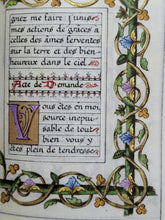 gnez me faire l'unis
mes actions de grâces à
celles des âmes ferventes
sur la terre et des bien-
heureux dans le ciel.
Acte de Demande
Vous êtes en moi
source inepui-
sable de tout
bien vous y
êtes plein de tendresse